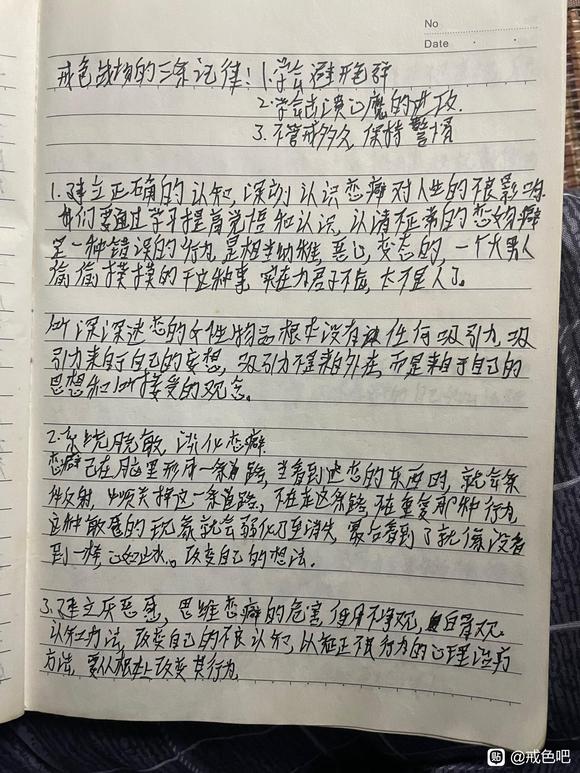 No
Date
戒色战场的三条记律! 1.学会避开色群
2.学会击溃心魔的进攻.
3.不管戒多久, 保持警惕
1.建立正确的认知,深刻认识恋癖对人生的不良影响.
我们要通过学习提高觉悟和认识,认清不正常的恋物癖
是一种错误的行为,是相当幼稚,恶心,变态的,一个大男人
偷偷摸摸的干这种事,实在为君子不齿,太不是人了。
你深深迷恋的女性物品根本没有任何吸引力,吸
引力来自于自己的妄想,吸引力不是来自外在,而是来自于自己的
思想和你接受的观念。
2.系统脱敏 淡化恋癖.
恋癖已在脑里形成一条道路,当看到迷恋的东西时,就会条
件反射,必须关掉这一条道路,不在走这条路,不在重复那种行为,
这种敏感的现象就会弱化乃至消失,最后看到了就像没看
到一样心如止水。改变自己的想法.
3.建立厌恶感,思维恋癖的危害 但用不净观,白骨观.
认知疗法,改变自己的不良认知,以矫正不良行为的心理治疗
方法,要从根本上改变其行为
贴 @戒色吧